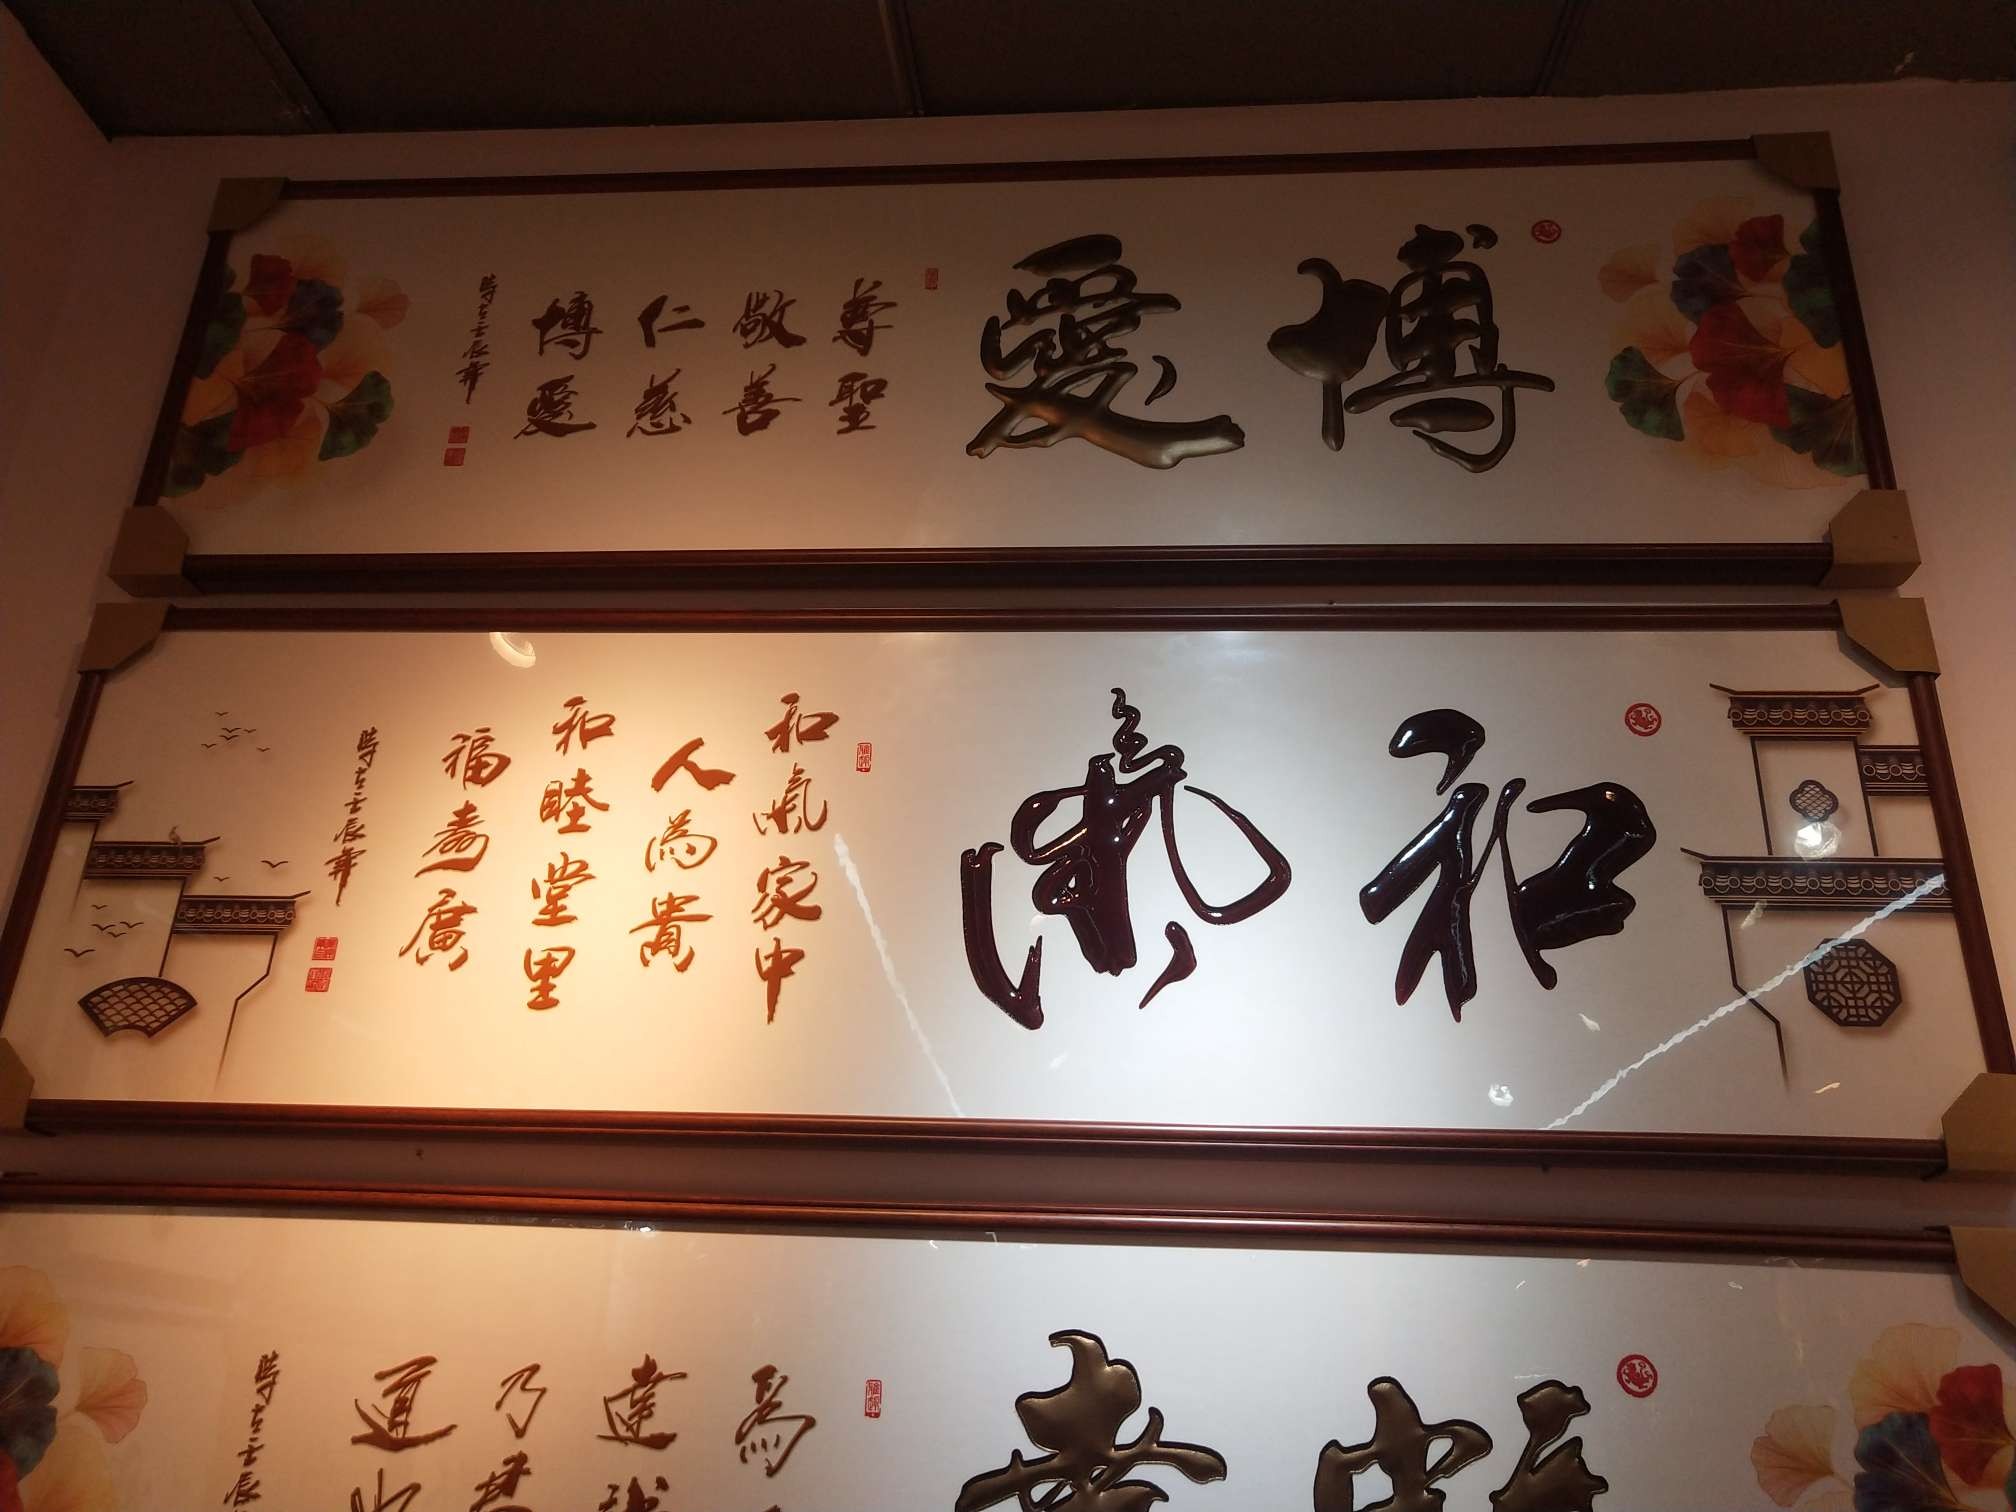 博愛
尊聖
敬善
仁慈
博愛
時在壬辰年
和氣
和氣家中
人為貴
和睦堂里
福壽廣
時在壬辰年
為
達
乃
道
時在壬辰